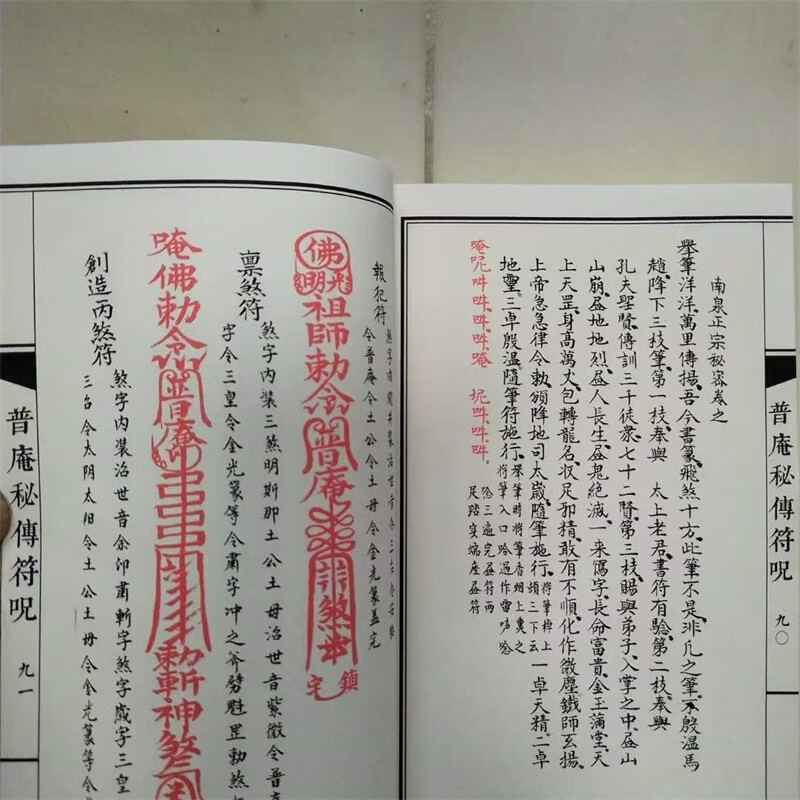 普庵秘傳符呪
九〇
南泉正宗秘密卷之
舉筆洋洋、萬里傳揚、吾今書篆、飛煞十方、此筆不是、非凡之筆、殷溫馬
趙、降下三枝筆、第一枝奉與 太上老君、書符有驗、第二枝奉與
孔夫聖賢、傳訓三千徒衆、七十二賢、第三枝、賜與弟子、入掌之中、畐山
山崩、畐地地烈、畐人長生、畐鬼絶滅、一來寫字、長命富貴、金玉滿堂、天
上天罡、身高萬丈、包轉龍名、狀足邪精、敢有不順、化作微塵、鐵師玄揚、
上帝急急律令勅、頒降地司太歲、隨筆施行、將筆棹上頭三下云 一卓天精、二卓
地靈、三卓殷溫、隨筆符施行、舉筆時將筆香烟上裏之 將筆入口哈過作雷哆唸
唸三遍完畐符兩 足踏寅端座畐符
唵呢吽吽、吽、吽、唵 吽、吽、吽、
普庵秘傳符呪
九一
報犯符
令普庵令土公令土母令金光篆蓋完
佛光明
祖師勅令普庵
煞
鎮宅
禀煞符
煞字內裝三煞明斯那土公土母治世音紫微令普
字令三皇令金光篆等令肅字冲之斧劈魁罡勅煞
唵佛勅令普庵
勅斬神煞
創造丙煞符
煞字內裝治世音余卯肅斬字煞字歲字三皇
三台令太阴太阳令土公土母令金光篆等令